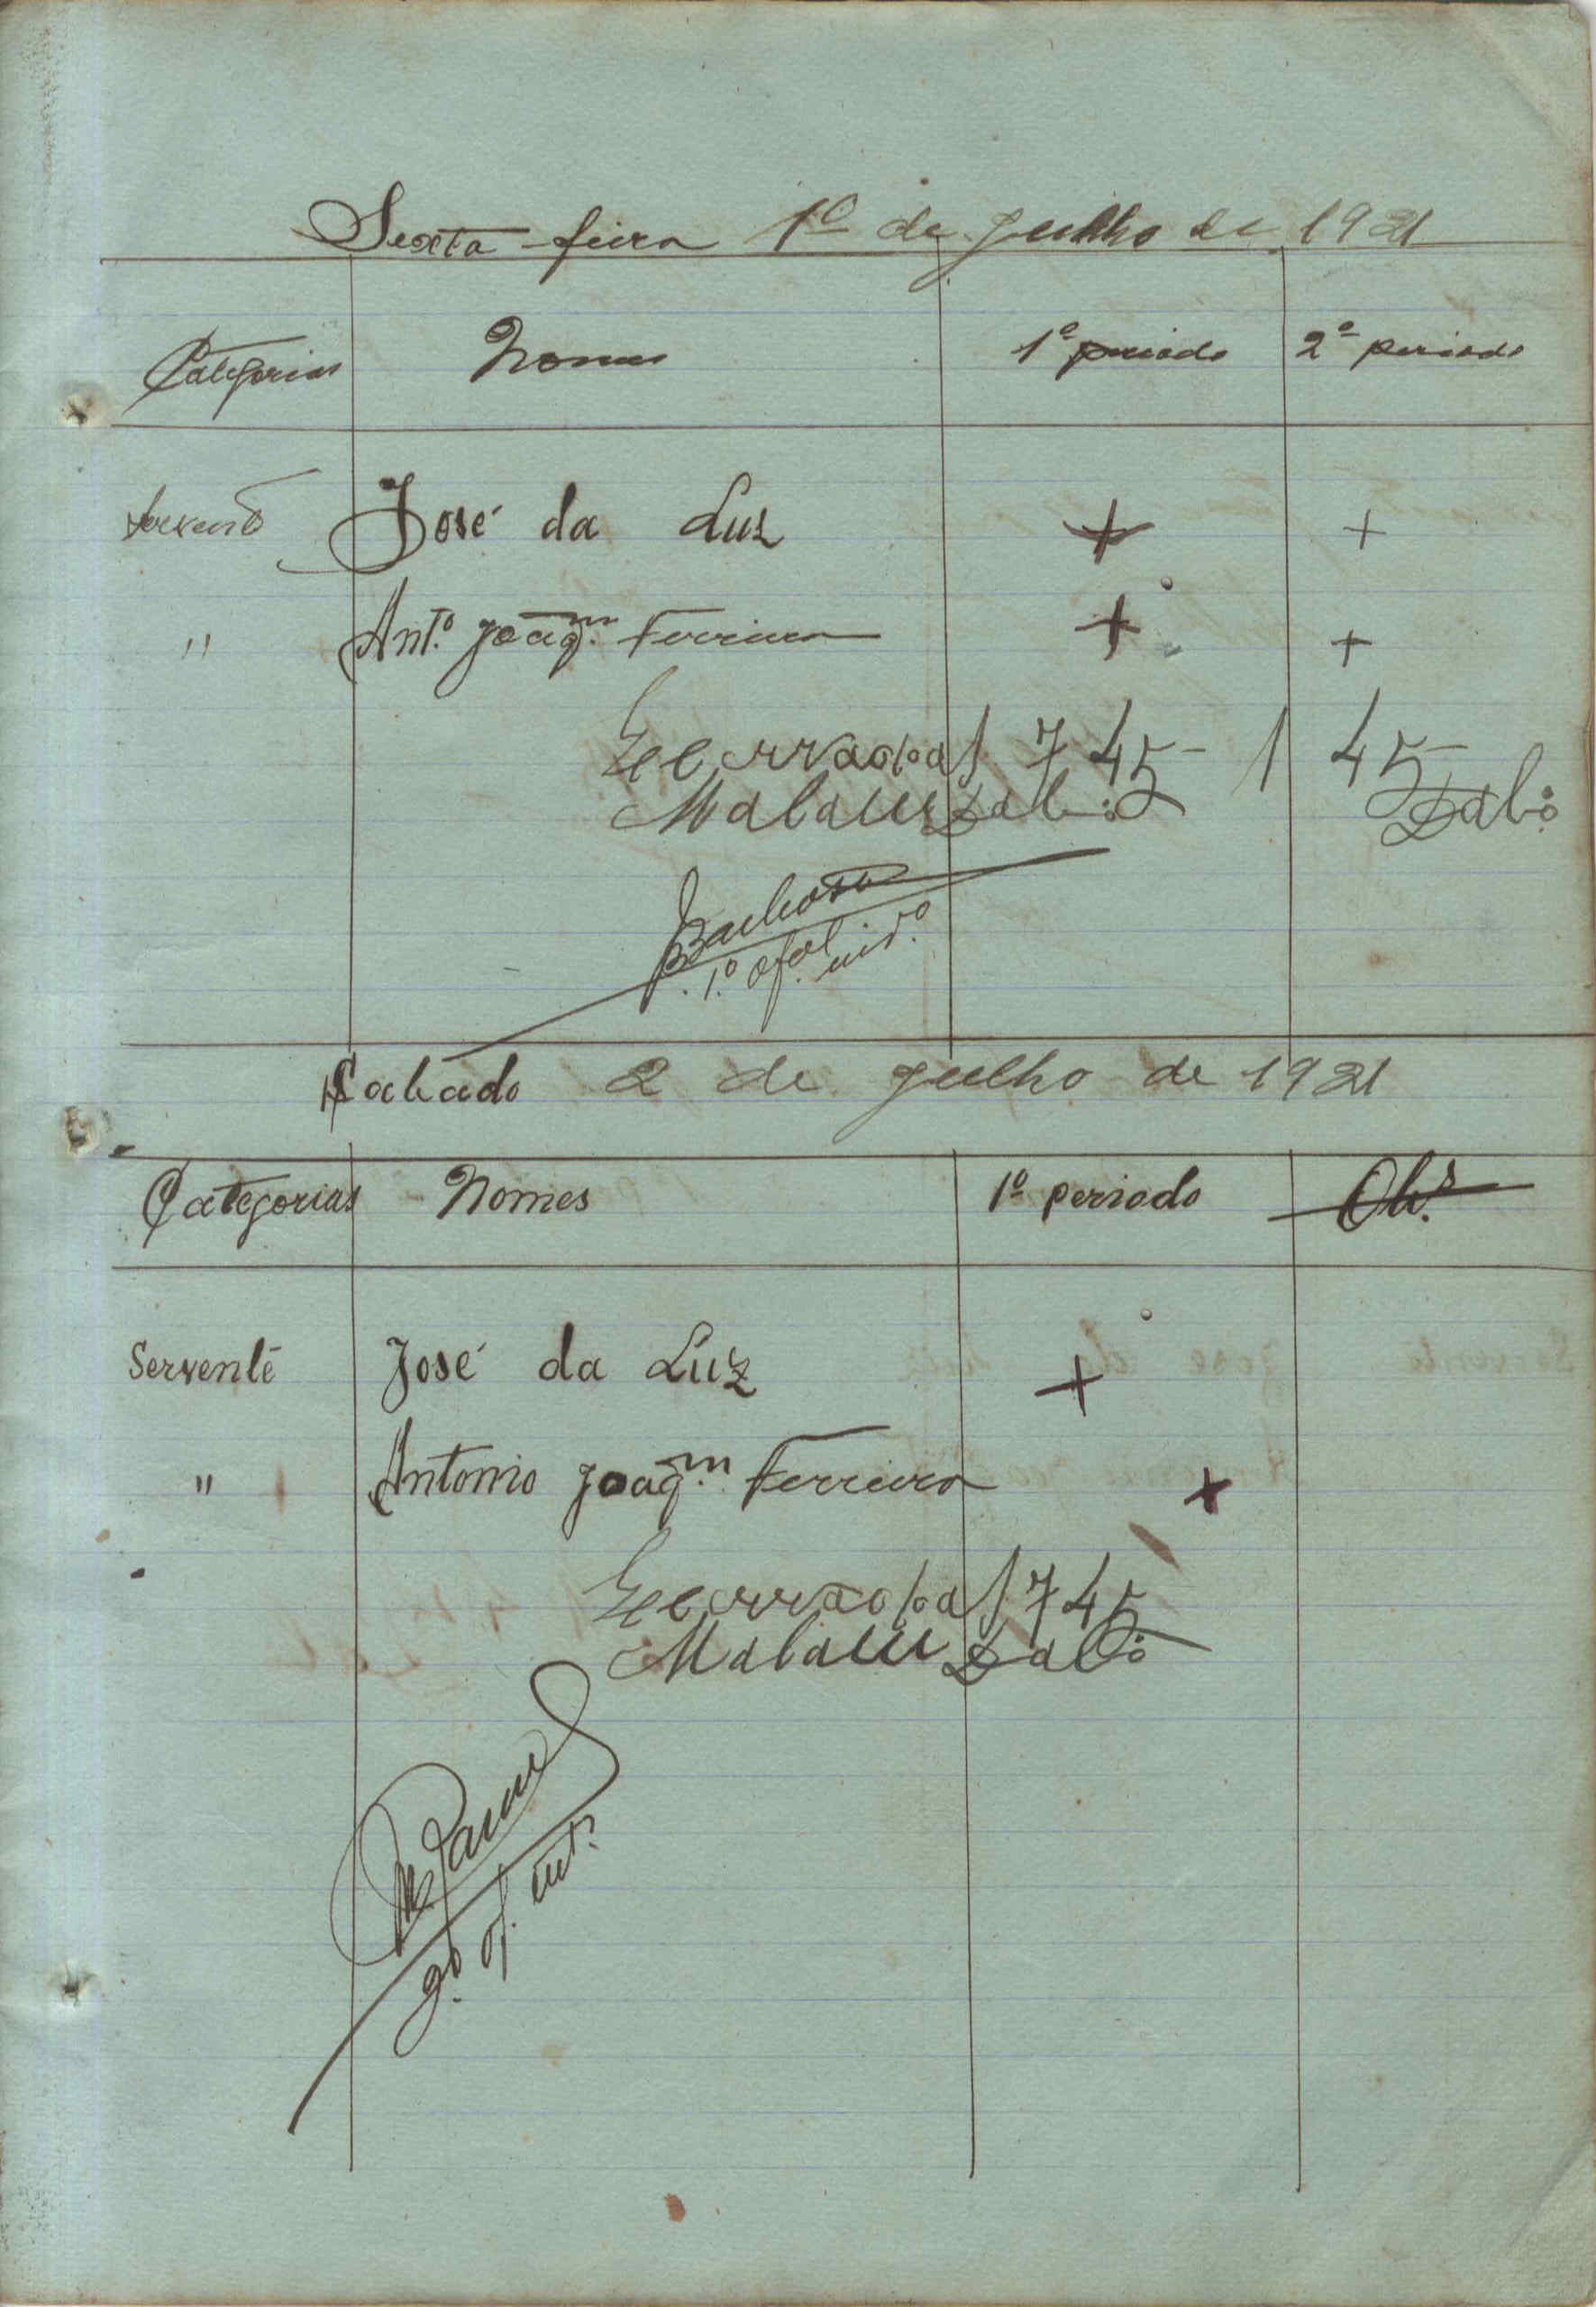 Sexta-feira 1º de Julho de 1921
Categorias Nomes 1º periodo 2º periodo
Servente José da Luz + +
" Antº. Joaqm. Ferreira + +
7 45 1 45
Malam Dabó Dabó
Barbosa
1º. of.al
Sabado 2 de Julho de 1921
Categorias Nomes 1º periodo Obs.
Servente José da Luz +
" Antonio Joaqm. Ferreira +
7 45
Malam Dabó
of. int.